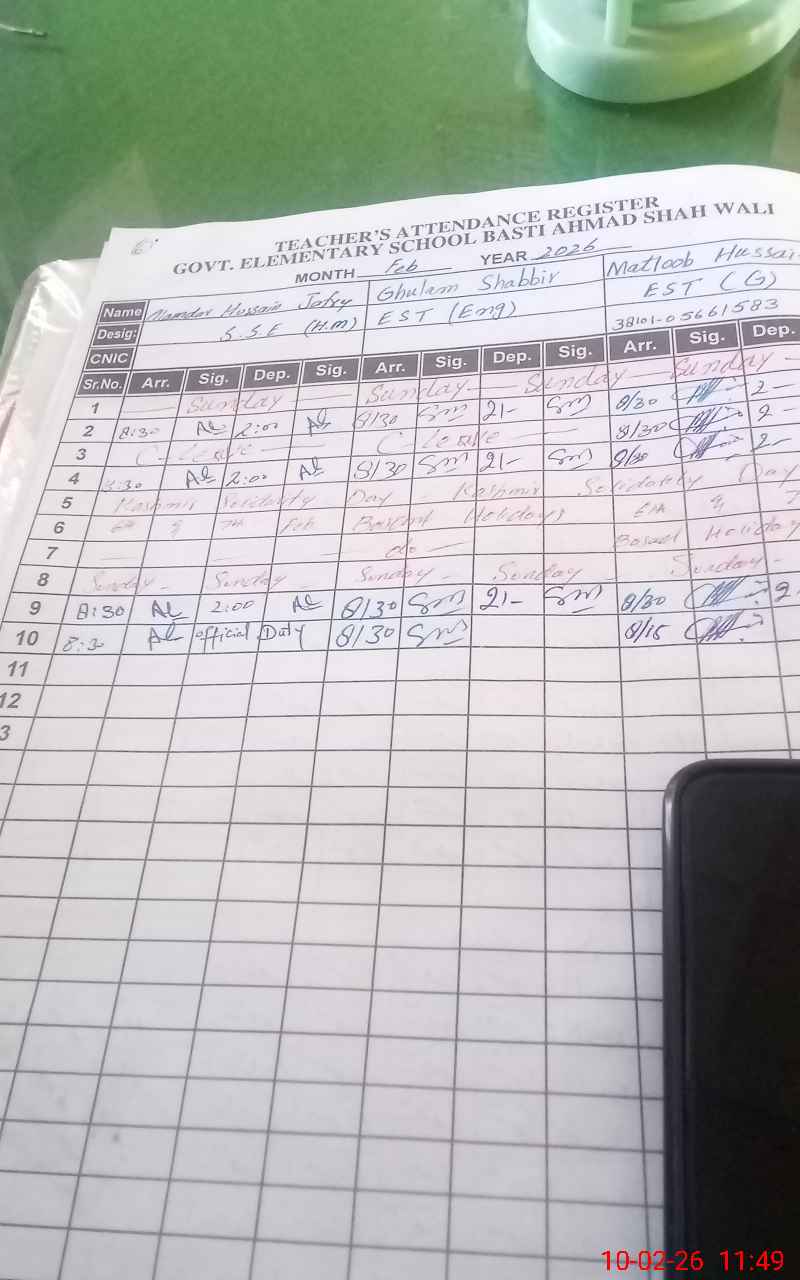 TEACHER'S ATTENDANCE REGISTER
GOVT. ELEMENTARY SCHOOL BASTI AHMAD SHAH WALI
MONTH Feb YEAR 2026
Name Hussain Ghulam Shabbir Matloob Hussai
Desig: S.S.E (H.M) EST (Eng) EST (G)
CNIC 38101-05661583
Sr.No. Arr. Sig. Dep. Sig. Arr. Sig. Dep. Sig. Arr. Sig. Dep.
1 Sunday Sunday Sunday Sunday
2 8:30 2:00 8/30 2/- 8/30 2-
3 C-Leave C-Leave 8/30 2-
4 8:30 2:00 8/30 2/- 8/30 2-
5 Kashmir Solidarity Day - Kashmir Solidarity Day
6 6th & 7th Feb Basent Holidays 6th &
7 do Holiday
8 Sunday - Sunday Sunday - Sunday Sunday -
9 8:30 2:00 8/30 2/- 8/30 2
10 8:30 official Duty 8/30 8/15
11
12
3
10-02-26 11:49